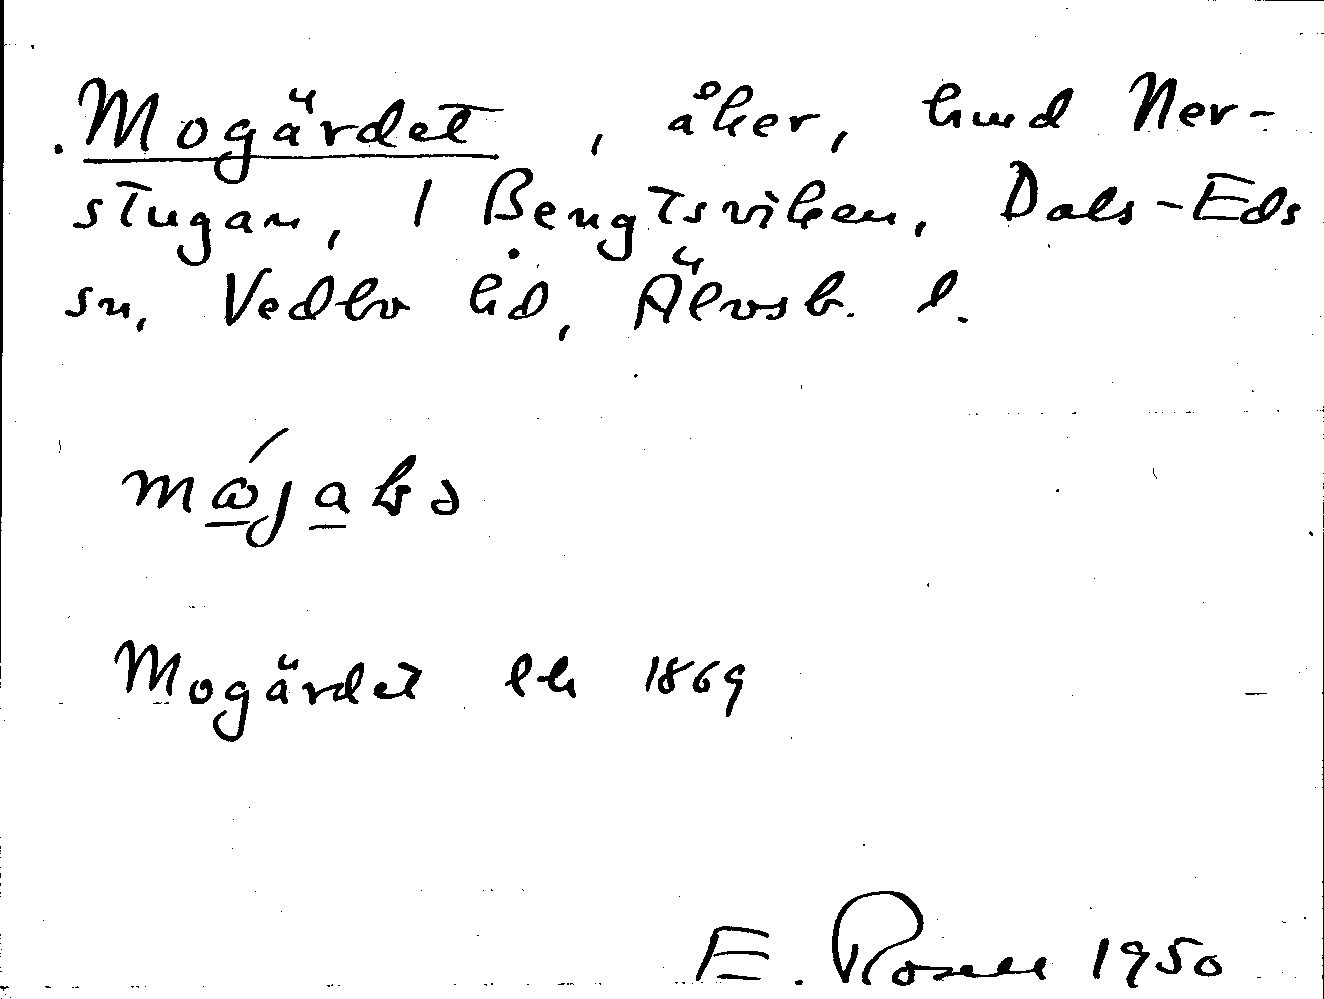 Mogärdet, åker, hmd Ner-
stugan, 1 Bengtsviken, Dals-Eds
sn, Vedbo hd, Älvsb. l.
Mogärdet lk 1869
E. Rosell 1950